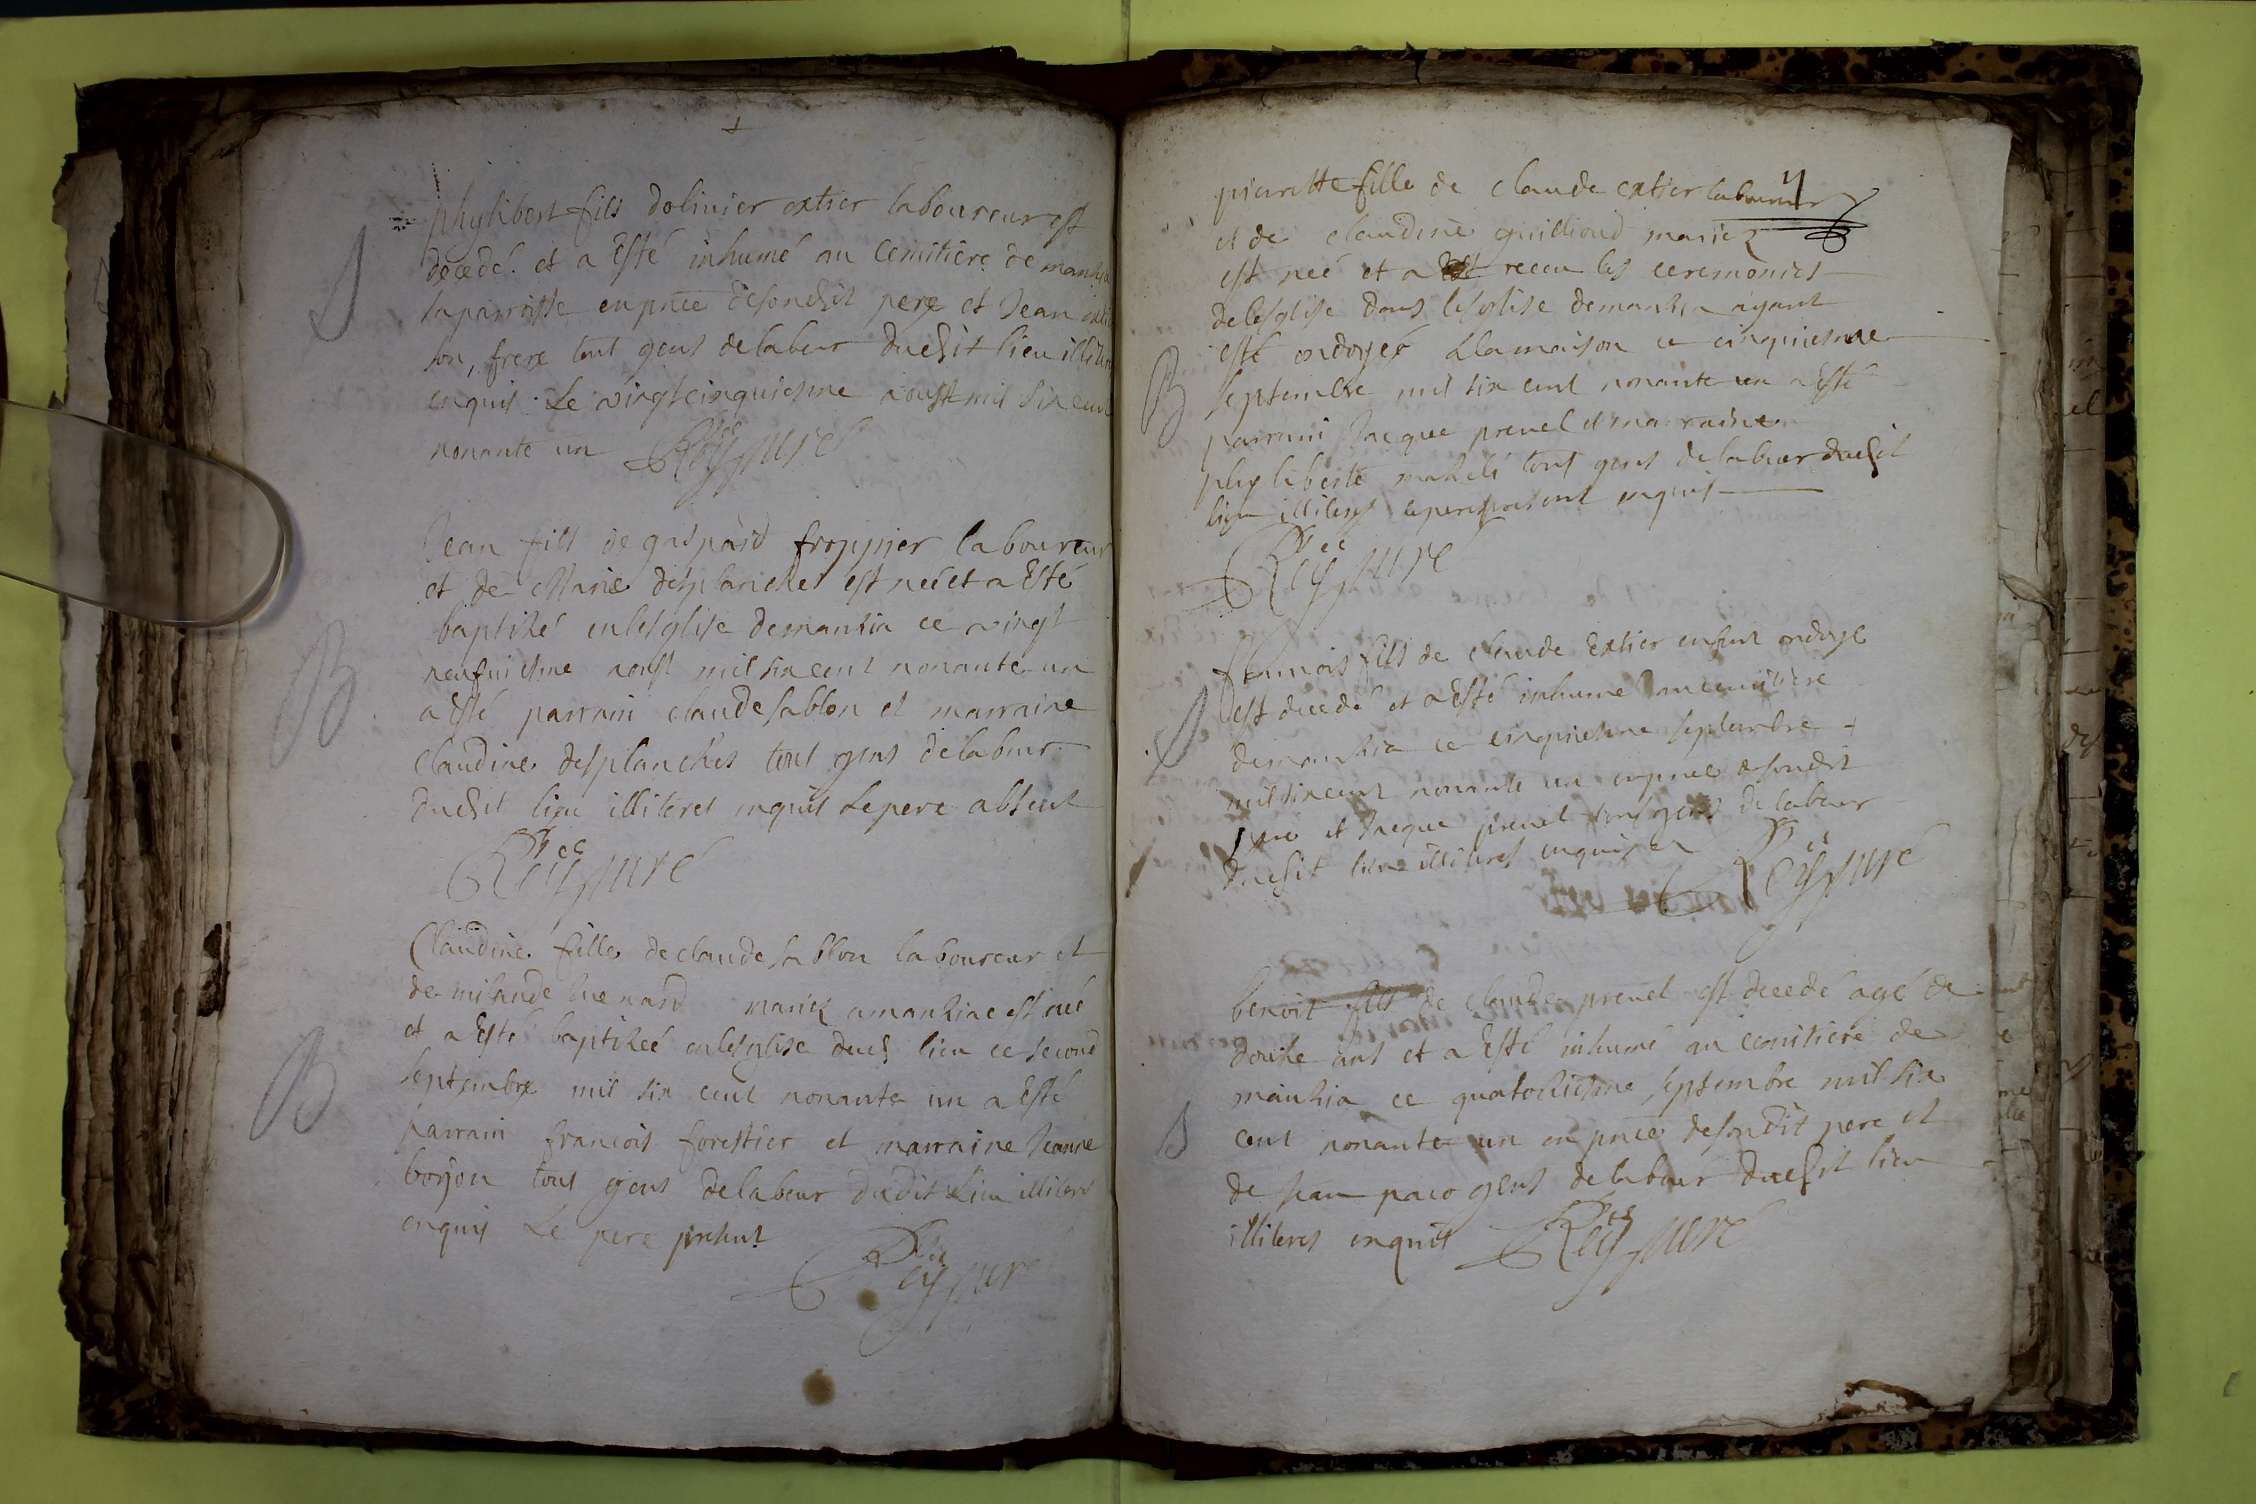 phylibert fils dolivier extier laboureur est
decedé et a esté inhumé au cemitiere de manzia
sa parroisse en pnce desondit pere et Jean
son frere tout gens delabeur dudit lieu
enquis Le vingtcinquiesme aoust mil six cent
nonante un Reÿ curé
S
Jean fils de gaspard froppier laboureur
et de Marie desplanches est née et a esté
baptizé en lesglise demanzia ce vingt
neufuiesme aoust mil six cent nonante un
a esté parrain claude sablon et marraine
claudine desplanches tout gens delabeur
dudit lieu illiteres enquis Le pere absent
Reÿ curé
B
Claudine fille de claude sablon laboureur et
de mariez a manziac est née
et a esté baptizeé en lesglise dud lieu ce second
septembre mil six cent nonante un a esté
parrain francois forestier et marraine Jeanne
borjon tous gens delabeur dudit Lieu illiteres
enquis Le pere present
Reÿ curé
B
pierrette fille de claude extier laboureur
et de claudine guillioud mariez
est neé et a receu les ceremonies
delesglise dans lesglise demanzia ayant
esté ondoyeé a la maison ce cinquiesme
septembre mil six cent nonante un a esté
parrain Jacque prevel et marraine
phyliberte tous gens delabeur dudit
lieu illiteres le pere present enquis
Reÿ curé
B
francois fils de claude extier enfant ondoyé
est decedé et a esté inhumé au cemitiere
demanzia ce cinquiesme septembre
mil six cent nonante un en pnce desondit
pere et Jacque prevel tous gens delabeur
dudit lieu illiteres enquis
Reÿ curé
S
benoit fils de claude prevel est decedé agé de
douze ans et a esté inhumé au cemitiere de
manzia ce quatorziesme septembre mil six
cent nonante un en pnce desondit pere et
de Jean gens delabeur dudit lieu
illiteres enquis Reÿ curé
S